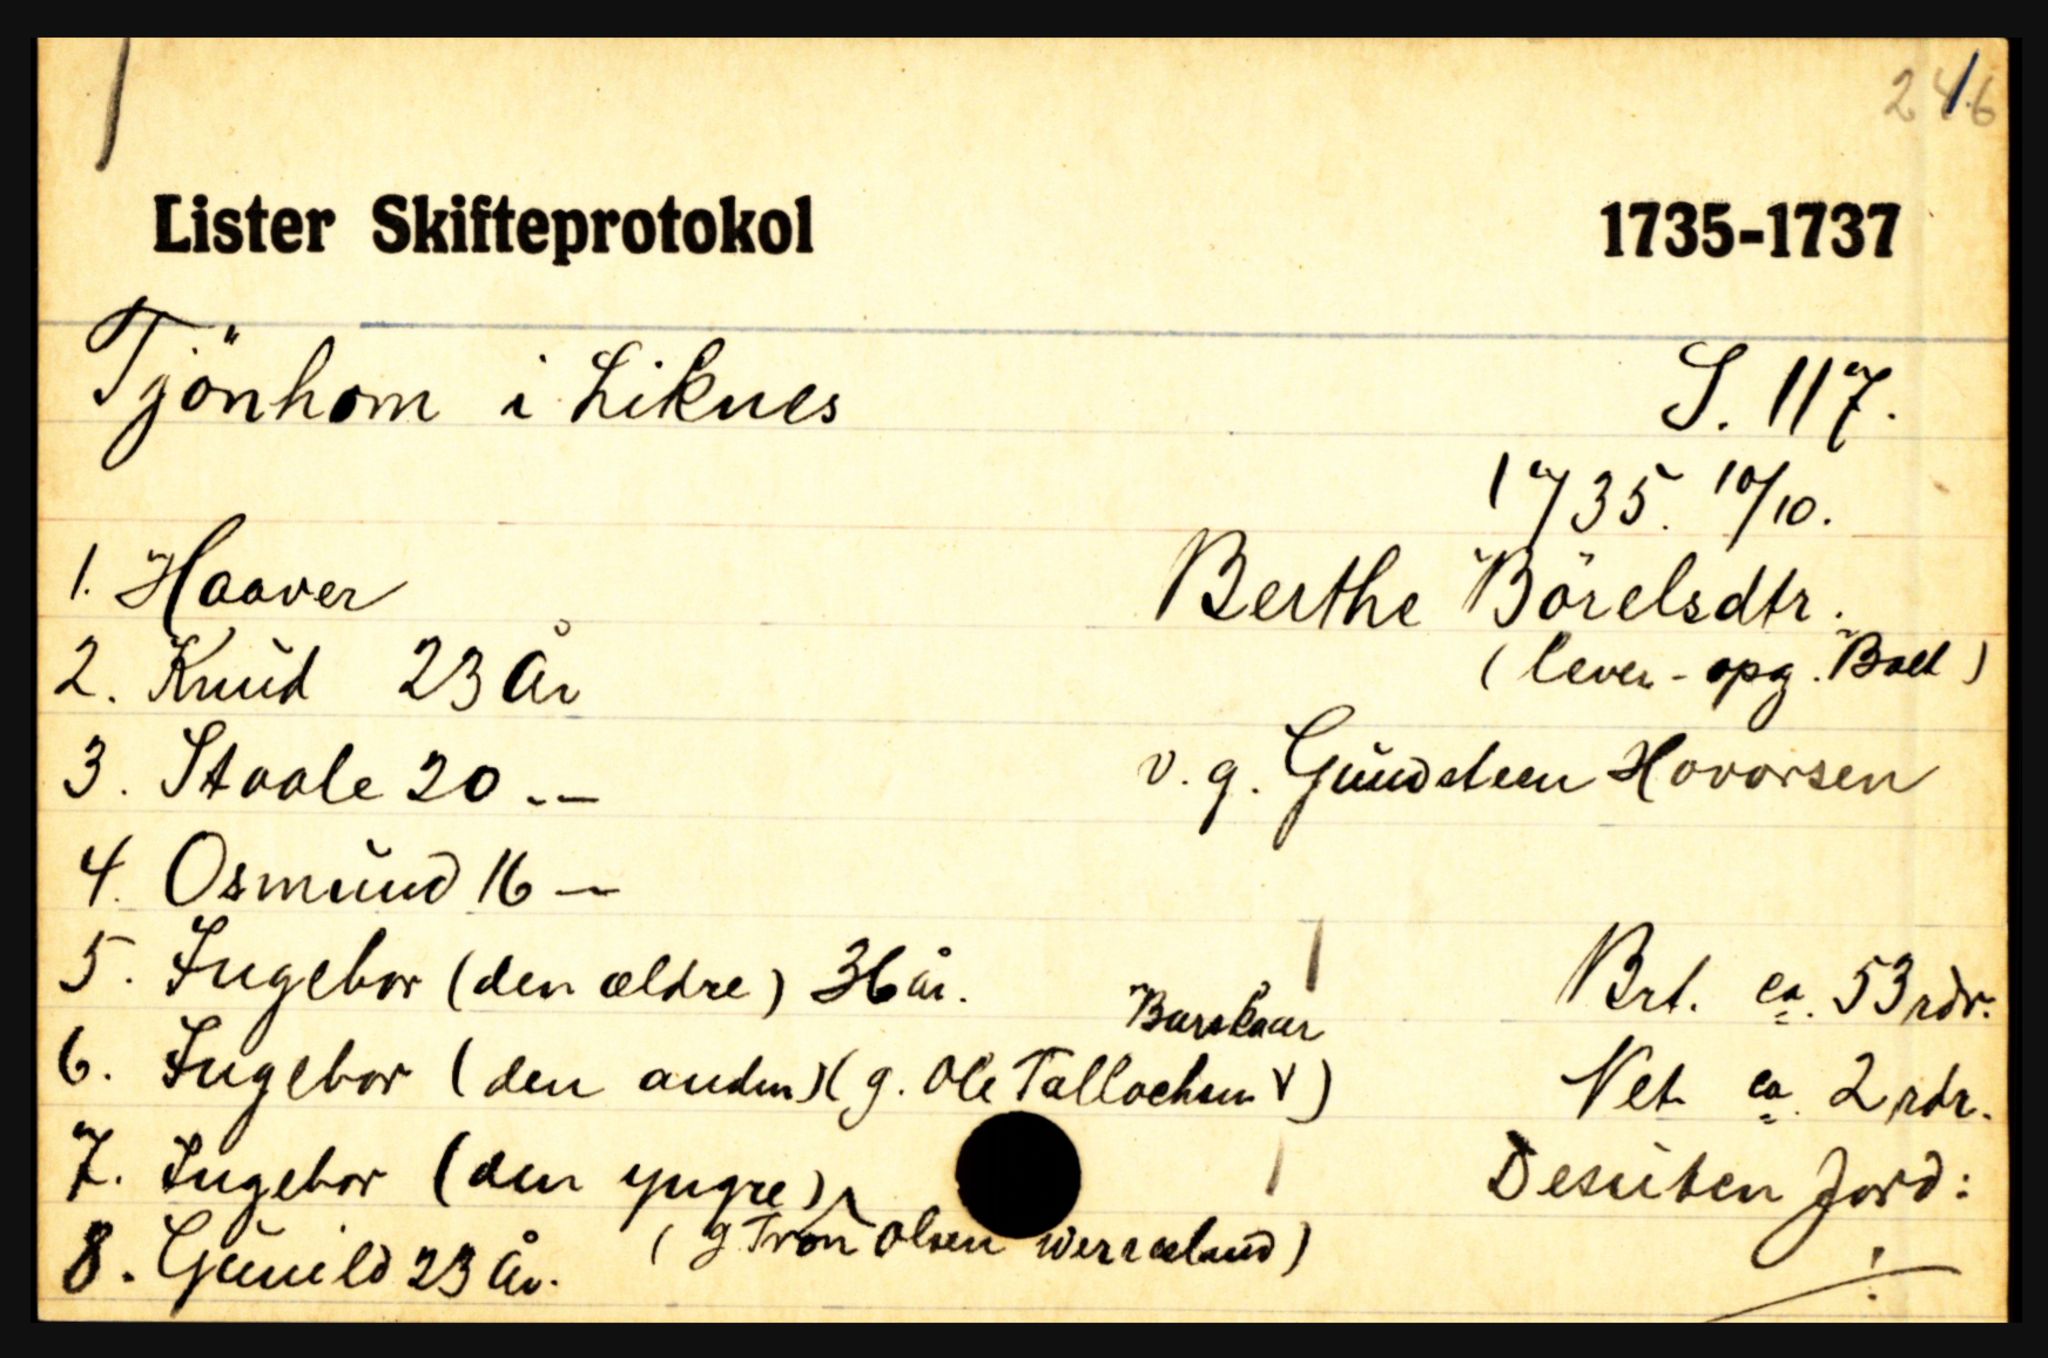 246
Lister Skifteprotokol 1735-1737
Tjönhom i Liknes S. 117.
1735. 10/10.
1. Haaver Berthe Börelsdtr.
2. Knud 23 år (lever - opg. Boet)
3. Staale 20 -- v. g. Gundsteen Hovorsen
4. Osmund 16 —
5. Ingebor (den ældre) 36 år. Brt. ca. 53 rdr.
Barskaar
6. Ingebor (den anden) (g. Ole Tallachsen V) Net ca. 2 rdr.
7. Ingebor (den yngre) Desuten Jord:
(g Tron Olsen Werraland)
8. Gunild 23 år.